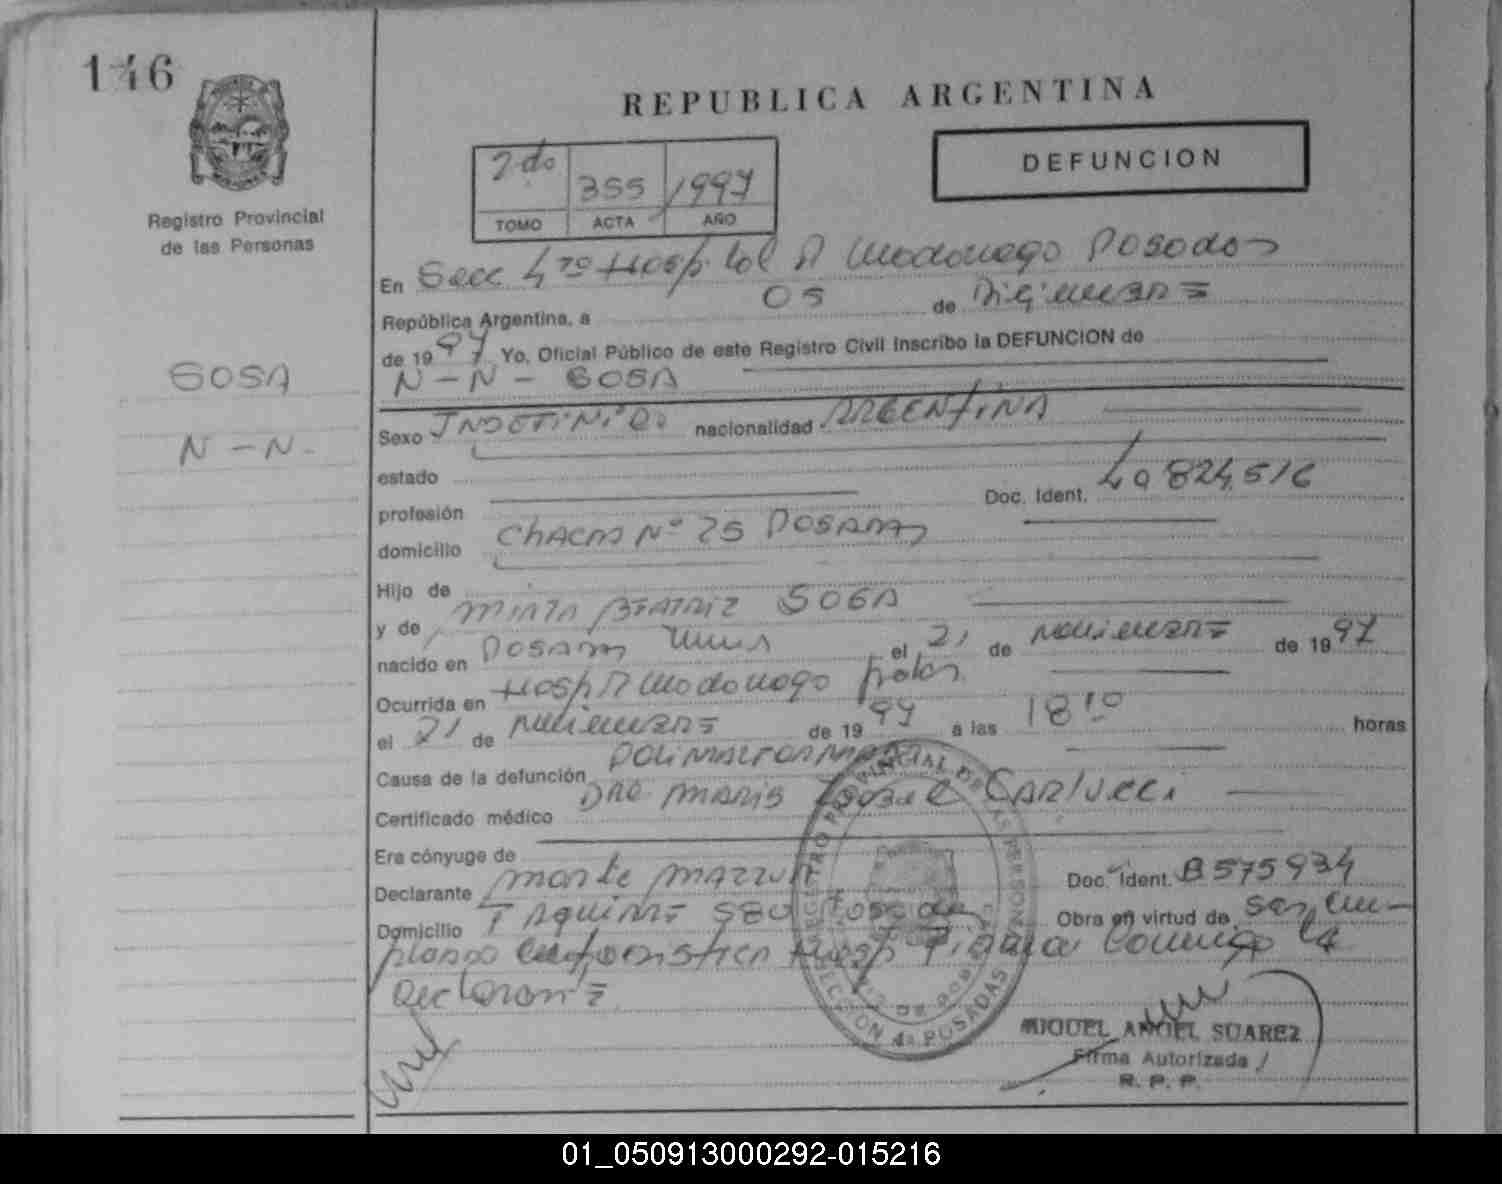 146
Registro Provincial
de las Personas
REPUBLICA ARGENTINA
DEFUNCION
2do 355 1997
TOMO ACTA AÑO
En Secc 4ta Hosp R Madariaga Posadas
República Argentina, a 05 de Diciembre
de 1997 Yo, Oficial Público de este Registro Civil Inscribo la DEFUNCION de
N-N- SOSA
SOSA
N-N-
Sexo Indefinido nacionalidad ARGENTINA
estado
profesión Doc. Ident. 40.824.516
domicilio Chacra Nº 25 Posadas
Hijo de
y de Mirta Beatriz SOSA
nacido en Posadas el 21 de Noviembre de 1997
Ocurrida en Hosp R Madariaga Pdas
el 21 de Noviembre de 1997 a las 18 10 horas
Causa de la defunción Polimalformado
Certificado médico Dra Maria Isabel Carlucci
Era cónyuge de
Declarante Doc. Ident. 8575934
Domicilio 580 Posadas Obra en virtud de ser em-
pleado Hosp Firma Conmigo la
Declarante
REGISTRO PROVINCIAL DE LAS PERSONAS
SECCION 4a POSADAS
MIGUEL ANGEL SUAREZ
Firma Autorizada
R. P. P.
01_050913000292-015216